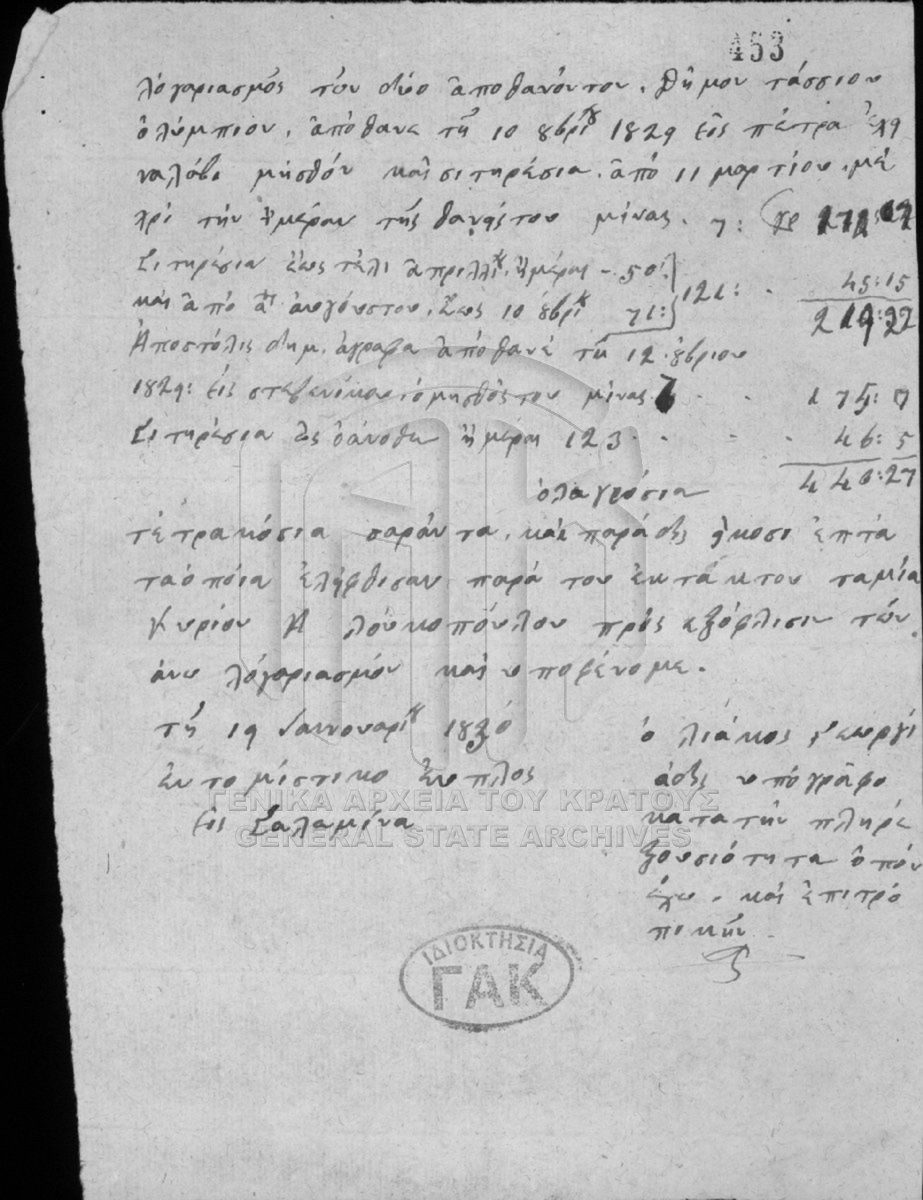 453
λόγαριασμὸς τῶν δύο ἀποθανόντον. θῆμον τάσσιου
ὀλύμπιου. ἀπόθανε τῇ 10 8βρίου 1829 εἰς πέτρα
ναλάβι μισθὸν καὶ σιτηρέσια. ἀπό 11 μαρτίου. μέ
χρι τὴν ἡμέραν τῆς θανῆςτου μίνας. 7:
Σιτηρέσια ἕως τέλι ἀπριλλίου ἡμέρας - 50:
καὶ ἀπὸ α αὐογούστου. ἕως 10 8βρίου 71: 121: . 45:15
Ἀποστόλις δημ. ἀγραφα ἀπόθανε τῇ 12 8βριου
1829: εἰς στεβενίκου ὁ μησθόςτου μίνας 7 . . 175: 0
Σιτηρέσια ὡς ἄνοθεν ἡμέρας 123 . . - . 46: 5
440:27
ὁλα γρόσια
τετρακόσια σαράντα. καὶ παράδες ἥκοσι ἑπτά
τὰ ὁποία ἐλήφθισαν παρὰ του ἐκτάκτου ταμία
Κυρίου Α λουκοπούλου πρὸς εξόφλισιν τῶν
άνω λόγαριασμόν καὶ υποφένομε.
τῇ 19 Ιαννουαρίου 1830
ἐκ το μίστικο ἔνοπλος
εἰς Σαλαμίνα
ὁ λιάκος γεωργι
άδες υπόγραφο
κατα τὴν πληρε
ξουσιότητα ὁποὺ
ἔχω. καὶ ἐπιτρο
πικὴν
ΓΕΝΙΚΑ ΑΡΧΕΙΑ ΤΟΥ ΚΡΑΤΟΥΣ
GENERAL STATE ARCHIVES
ΙΔΙΟΚΤΗΣΙΑ
ΓΑΚ